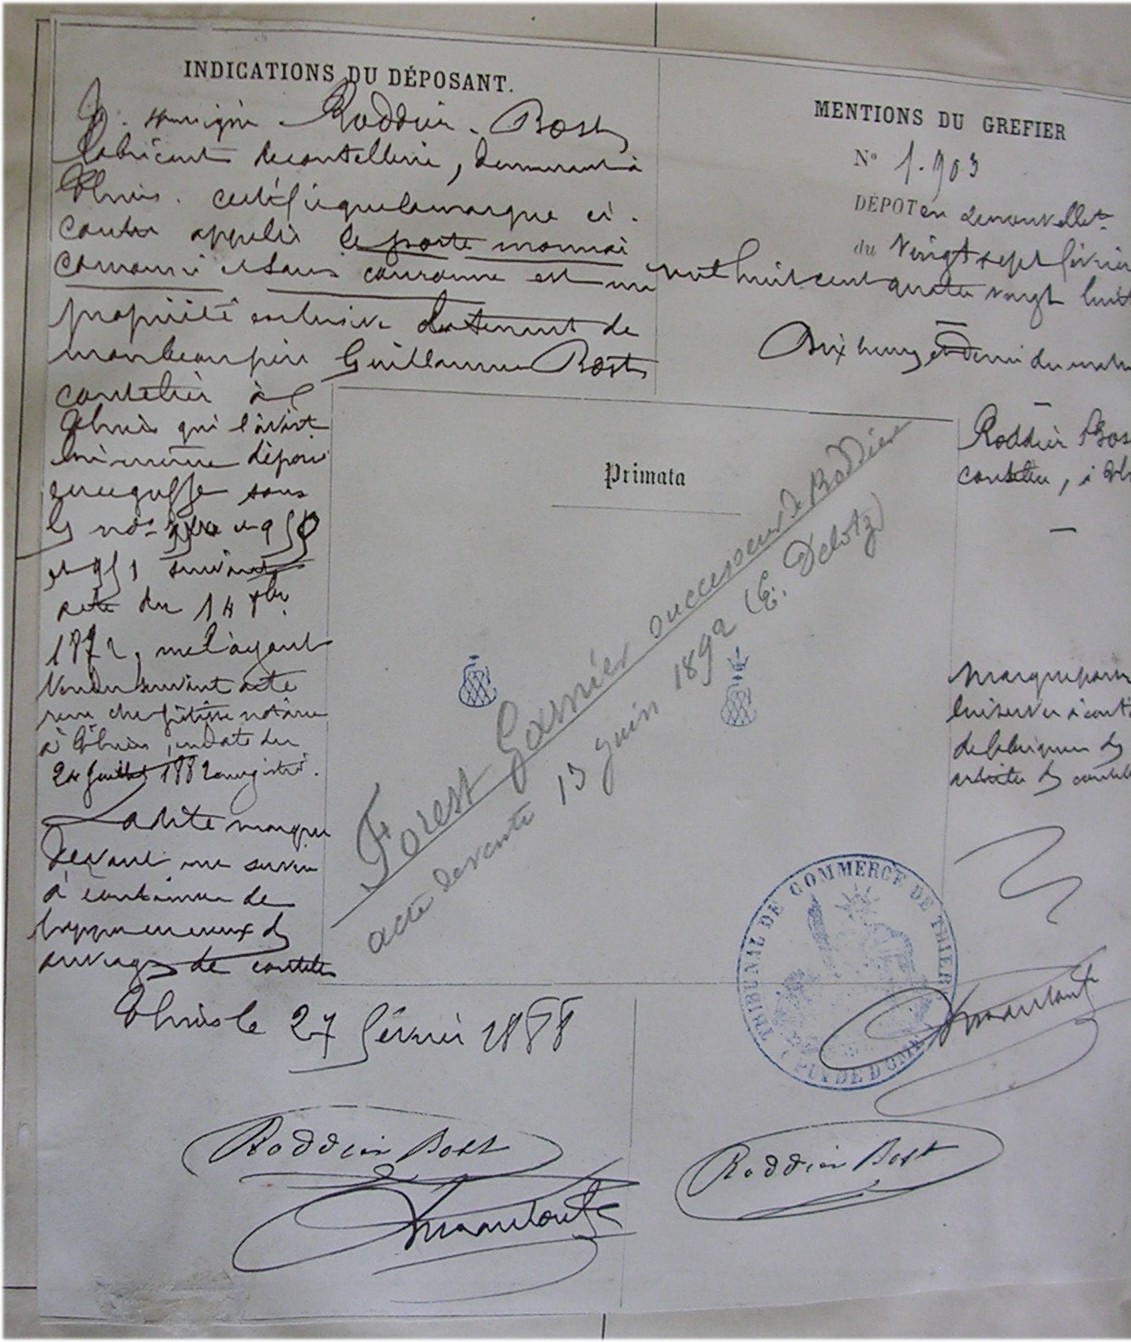 INDICATIONS DU DÉPOSANT.
Je soussigné Roddier-Bost
fabricant de coutellerie, demeurant à
Thiers. certifie que la marque ci-
contre appelée le porte monnaie
couronné et sans couronne est ma
propriété exclusive la tenant de
mon beau père Guillaume Bost
coutelier à
Thiers qui l'avait
lui même déposé
au greffe sous
les nos 950
et 951 suivant
acte du 14 8bre
1872, me l'ayant
vendu suivant acte
reçu chez notaire
à Thiers, en date du
24 juillet 1882 enregistré.
Ladite marque
devant me servir
à continuer de
frapper en creux des
ouvrages de coutellerie
Thiers le 27 février 1888
Roddier Bost
MENTIONS DU GREFIER
N° 1.903
DÉPOT en renouvellet
du Vingt sept février
mil huit cent quatre vingt huit
Dix heures et demi du matin
Roddier Bos
coutelier, à Th
Marque pour
lui servir à cont
de fabriquer des
articles de coutel
Primata
Forest Garnier successeur de Roddier
acte de vente 13 Juin 1892 (E. Delotz)
TRIBUNAL DE COMMERCE DE THIERS
(PUY DE DOME)
Roddier Bost